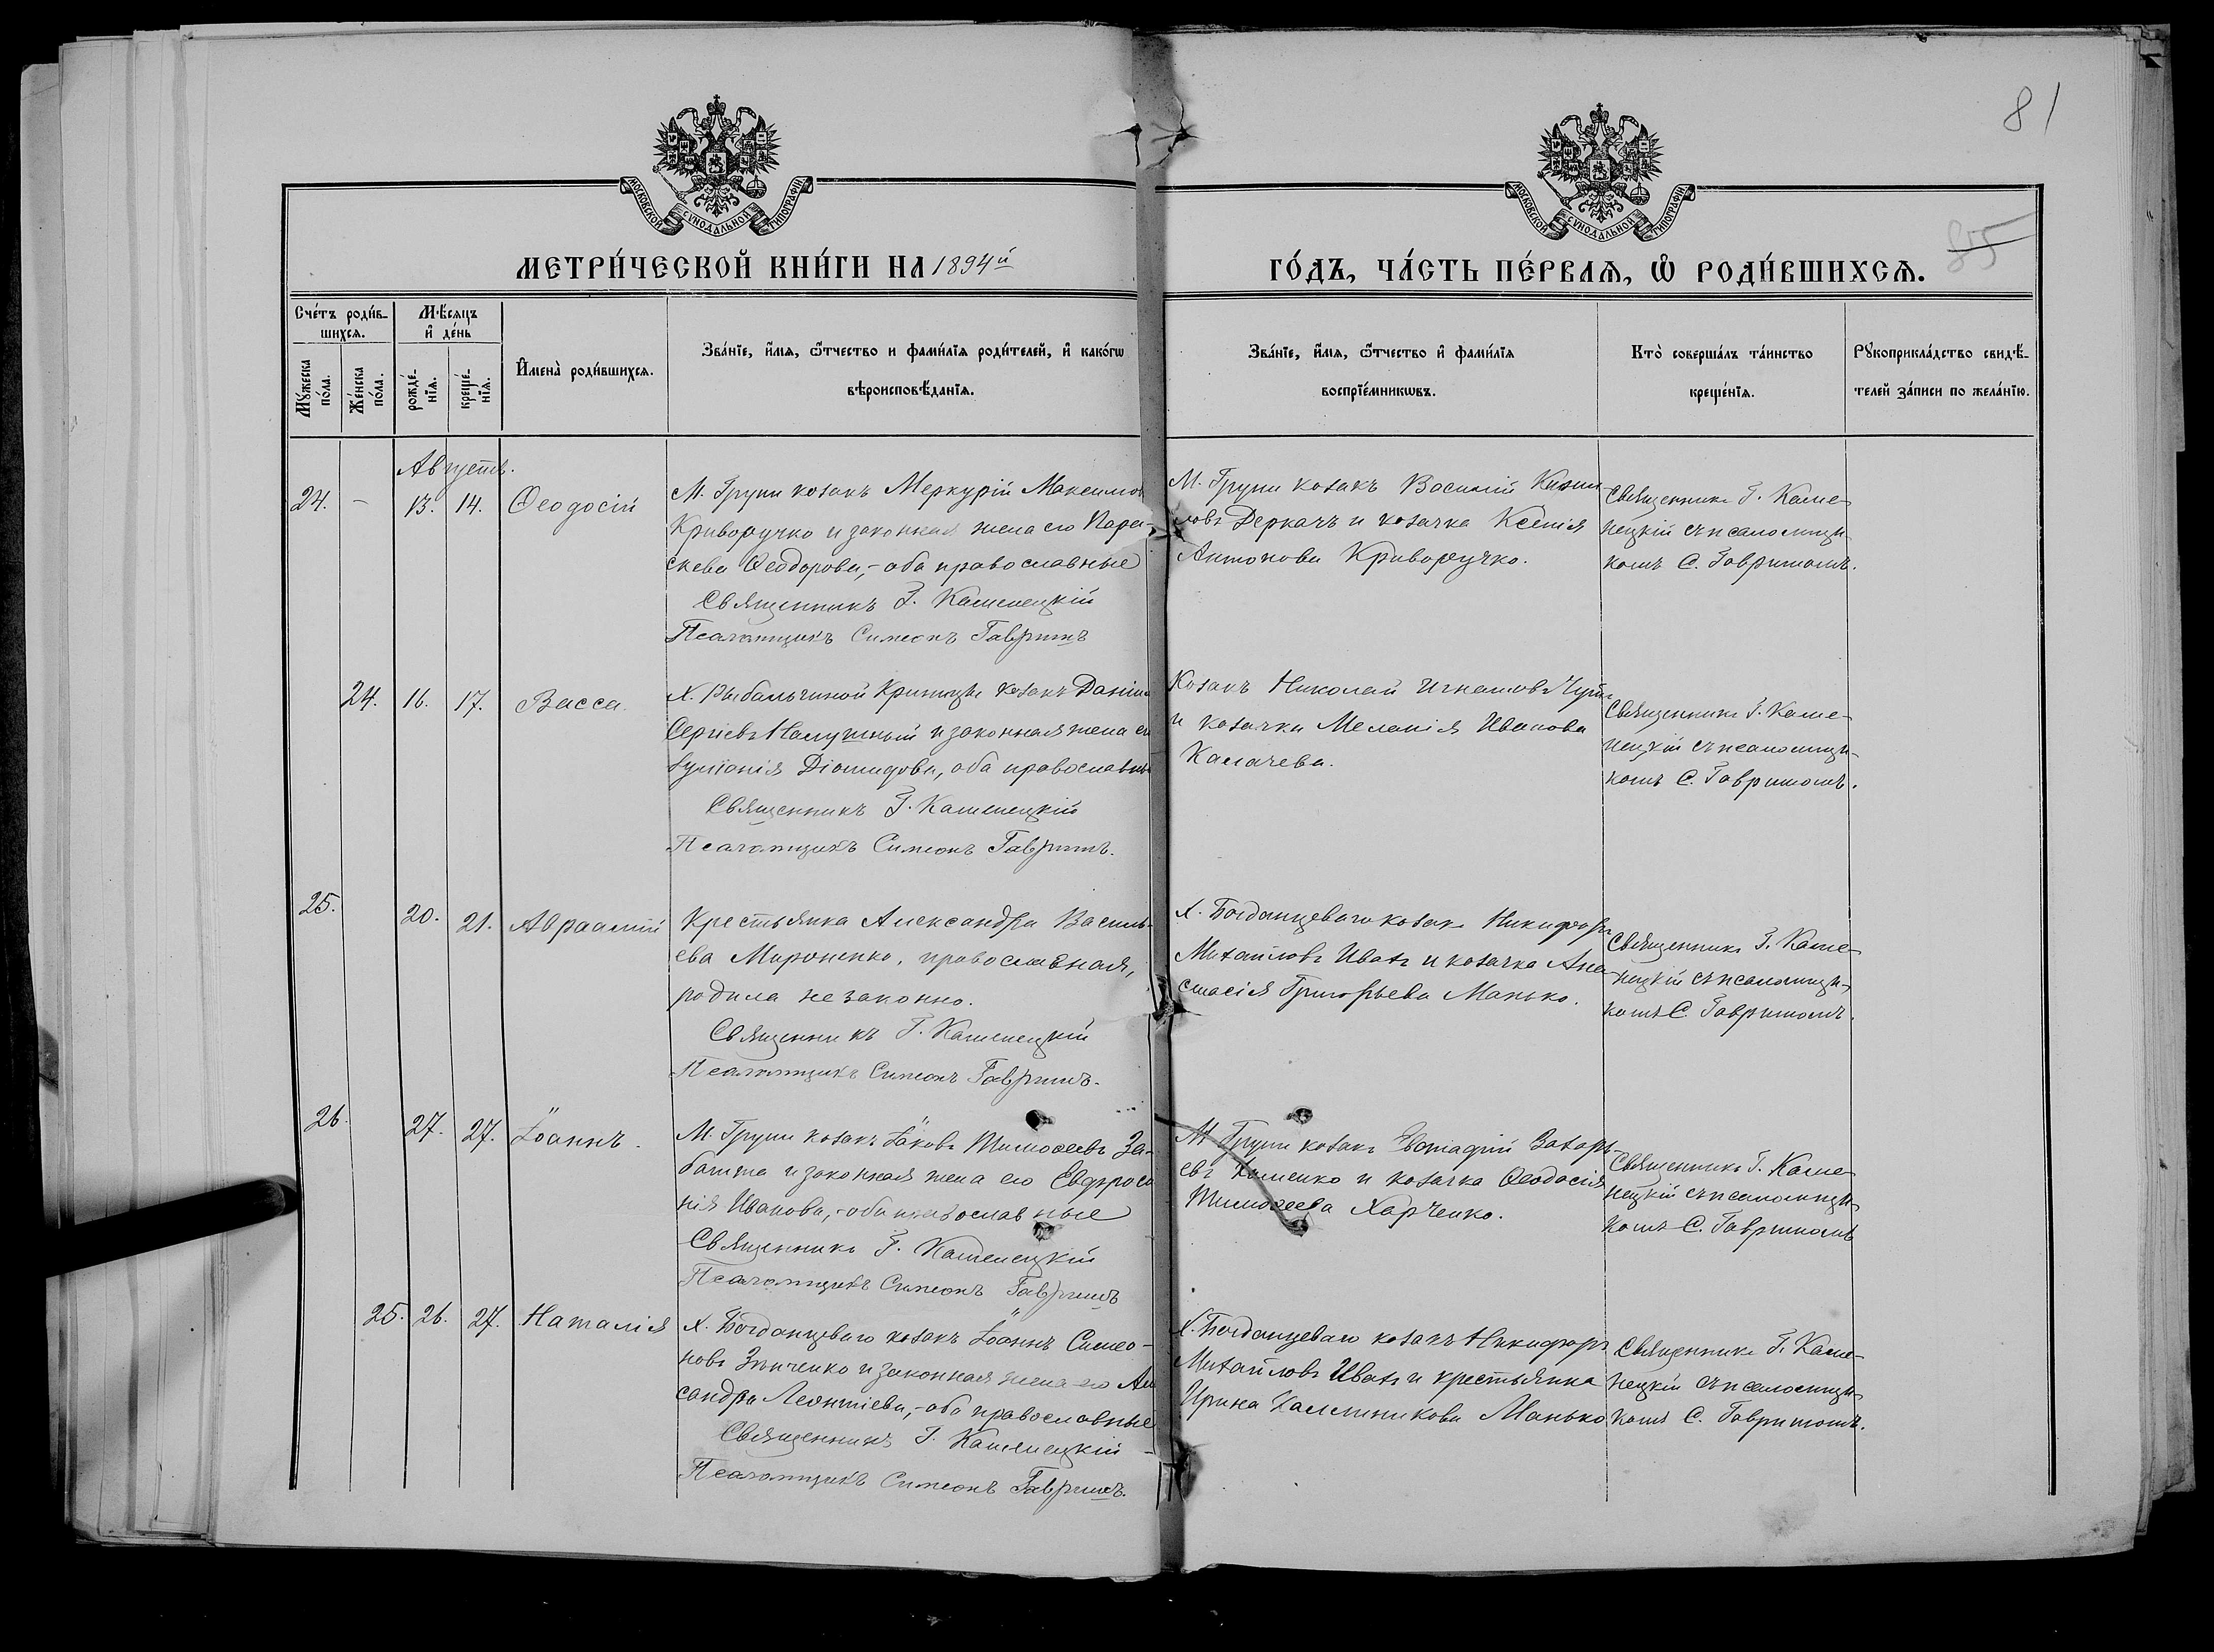 81
МОСКОВСКОЙ СѴНОДАЛЬНОЙ ТИПОГРАФІИ.
МОСКОВСКОЙ СѴНОДАЛЬНОЙ ТИПОГРАФІИ.
85
МЕТРИ́ЧЕСКОЙ КНИ́ГИ НА 1894й
ГО́ДЪ, ЧА́СТЬ ПЕ́РВАѦ, Ѡ҆ РОДИ́ВШИХСѦ.
Сче́тъ роди́в-
шихсѧ.
Мꙋ́жеска по́ла.
Же́нска по́ла.
Мѣ́сѧцъ
и҆ де́нь
рожде́-нїѧ.
креще́-нїѧ.
И҆мена̀ роди́вшихсѧ.
Зва́нїе, и҆́мѧ, ѻ҆́тчество и фами́лїѧ роди́телей, и҆ како́гѡ
вѣроисповѣ́данїѧ.
Зва́нїе, и҆́мѧ, ѻ҆́тчество и҆ фами́лїѧ
воспрїе́мникѡвъ.
Кто̀ соверша́лъ та́инство
креще́нїѧ.
Рꙋкоприкла́дство свидѣ́-
телей за́писи по жела́нїю.
Августъ.
24. - 13. 14. Ѳеодосій
М. Груни козакъ Меркурій Максимов
Криворучко и законная жена его Парас-
кева Ѳеодорова,- оба православные
Священникъ Г. Каменецкій
Псаломщикъ Симеонъ Гавришъ
М. Груни козакъ Василій
ловъ Деркачъ и козачка Ксенія
Антонова Криворучко.
Священникъ Г. Каме-
нецкій съ псаломщи-
комъ С. Гавришомъ.
24. 16. 17. Васса.
Х. Рыбальчиной Криницы козакъ Даніилъ
Сергіевъ и законная жена его
Діомидова, оба православные
Священникъ Г. Каменецкій
Псаломщикъ Симеонъ Гавришъ.
Козакъ Николай Игнатовъ
и козачка Меланія Иванова
Калачева.
Священникъ Г. Каме-
нецкій съ псаломщи-
комъ С. Гавришомъ.
25. 20. 21. Авраамій
Крестьянка Александра Василь-
ева Мироненко, православная,
родила незаконно.
Священникъ Г. Каменецкій
Псаломщикъ Симеонъ Гавришъ.
Х. Богданцеваго козакъ Никифоръ
Михайловъ Иващ и козачка Ана-
стасія Григорьева Манько.
Священникъ Г. Каме-
нецкій съ псаломщи-
комъ С. Гавришомъ.
26. 27. 27. Іоаннъ.
М. Груни козакъ Іаковъ Тимоѳеевъ За-
башта и законная жена его Евфроси
нія Иванова,- оба православные
Священникъ Г. Каменецкій
Псаломщикъ Симеонъ Гавришъ
М. Груни козакъ Захарь-
евъ Хоменко и козачка Ѳеодосія
Тимоѳеева Харченко.
Священникъ Г. Каме-
нецкій съ псаломщи-
комъ С. Гавришомъ
25. 26. 27. Наталія
Х. Богданцеваго козакъ Іоаннъ Симео-
новъ Зѣнченко и законная жена его Алек
сандра Леонтіева,- оба православные
Священникъ Г. Каменецкій
Псаломщикъ Симеонъ Гавришъ.
Х. Богданцеваго козакъ Никифоръ
Михайловъ Иващ и крестьянка
Ирина Калиникова Манько
Священникъ Г. Каме-
нецкій съ псаломщи-
комъ С. Гавришомъ.